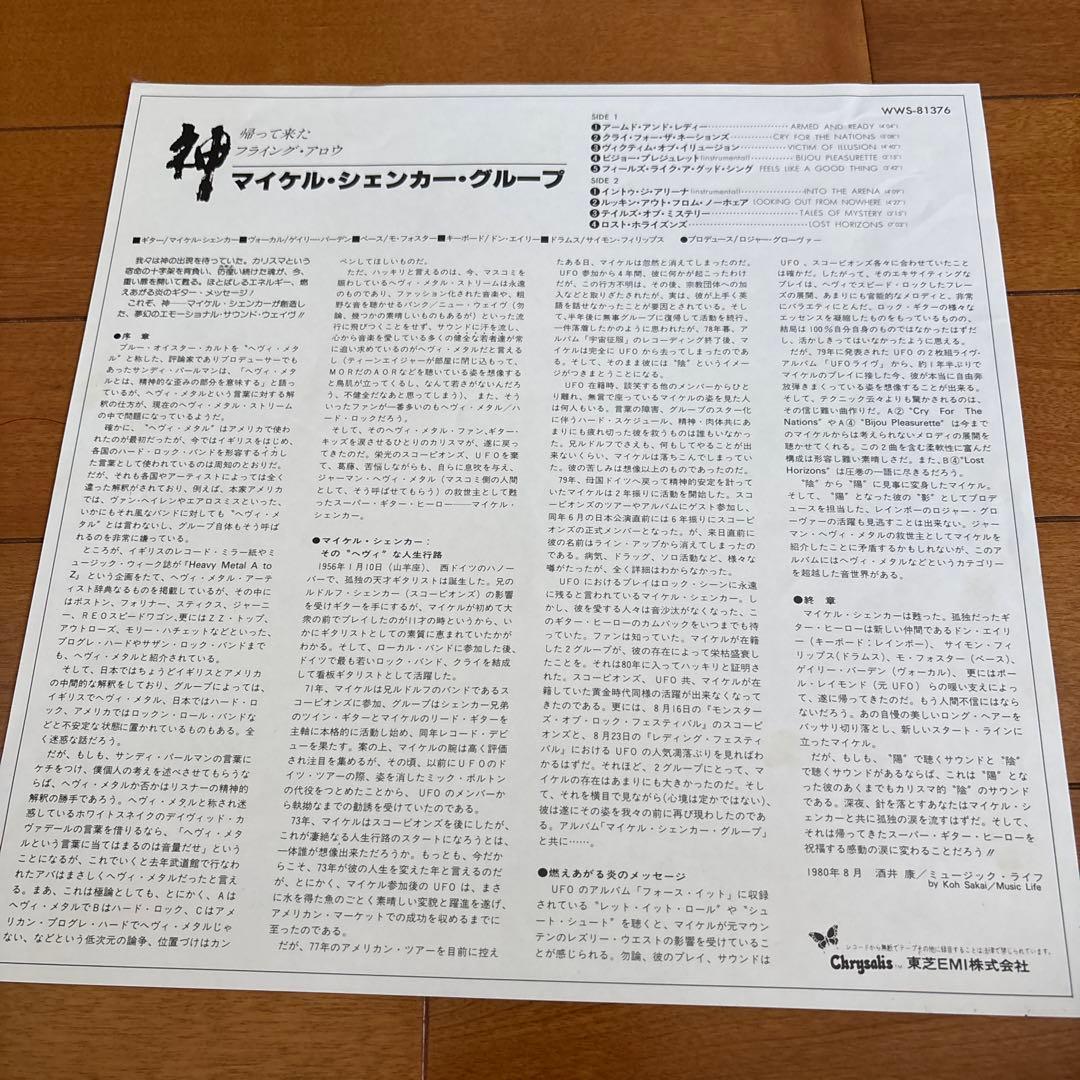 WWS-81376
神
帰って来た
フライング・アロウ
マイケル・シェンカー・グループ
SIDE 1
❶アームド・アンド・レディー……ARMED AND READY (4'04")
❷クライ・フォー・ザ・ネーションズ……CRY FOR THE NATIONS (5'08")
❸ヴィクティム・オブ・イリュージョン……VICTIM OF ILLUSION (4'40")
❹ビジョー・プレジュレット(instrumental)……BIJOU PLEASURETTE (2'15")
❺フィールズ・ライク・ア・グッド・シング FEELS LIKE A GOOD THING (3'42")
SIDE 2
❶イントゥ・ジ・アリーナ(instrumental)……INTO THE ARENA (4'09")
❷ルッキン・アウト・フロム・ノーホェア LOOKING OUT FROM NOWHERE (4'27")
❸テイルズ・オブ・ミステリー……TALES OF MYSTERY (3'15")
❹ロスト・ホライズンズ……LOST HORIZONS (7'03")
■ギター/マイケル・シェンカー■ヴォーカル/ゲイリー・バーデン■ベース/モ・フォスター■キーボード/ドン・エイリー■ドラムス/サイモン・フィリップス ●プロデュース/ロジャー・グローヴァー
我々は神の出現を待っていた。カリスマという
宿命の十字架を背負い、彷徨い続けた魂が、今、
重い扉を開いて甦る。ほとばしるエネルギー、燃
えあがる炎のギター・メッセージ!!
これぞ、神──マイケル・シェンカーが創造し
た、夢幻のエモーショナル・サウンド・ウェイヴ!!
●序 章
ブルー・オイスター・カルトを〝ヘヴィ・メタ
ル〟と称した、評論家でありプロデューサーでも
あったサンディ・パールマンは、「ヘヴィ・メタル
とは、精神的な歪みの部分を意味する」と語っ
ているが、ヘヴィ・メタルという言葉に対する解
釈の仕方が、現在のヘヴィ・メタル・ストリーム
の中で問題になっているようだ。
確かに、〝ヘヴィ・メタル〟はアメリカで使わ
れたのが最初だったが、今ではイギリスをはじめ、
各国のハード・ロック・バンドを形容するイカし
た言葉として使われているのは周知のとおりだ。
だが、それも各国やアーティストによっては全く
違った解釈がされており、例えば、本家アメリカ
では、ヴァン・ヘイレンやエアロスミスといった、
いかにもそれ風なバンドに対しても〝ヘヴィ・メ
タル〟とは言わないし、グループ自体もそう呼ば
れるのを非常に嫌っている。
ところが、イギリスのレコード・ミラー紙やミ
ュージック・ウィーク誌が『Heavy Metal A to
Z』という企画をたて、ヘヴィ・メタル・アーテ
ィスト辞典なるものを掲載しているが、その中に
はボストン、フォリナー、スティクス、ジャーニ
ー、REOスピードワゴン、更にはZZ・トップ、
アウトローズ、モリー・ハチェットなどといった、
プログレ・ハードやサザン・ロック・バンドまで
も、ヘヴィ・メタルと紹介されている。
そして、日本ではちょうどイギリスとアメリカ
の中間的な解釈をしており、グループによっては、
イギリスでヘヴィ・メタル、日本ではハード・ロ
ック、アメリカではロックン・ロール・バンドな
どと不安定な状態に置かれているものもある。全
く迷惑な話だろう。
だが、もしも、サンディ・パールマンの言葉に
ケチをつけ、僕個人の考えを述べさせてもらうな
らば、ヘヴィ・メタルか否かはリスナーの精神的
解釈の勝手であろう。ヘヴィ・メタルと称され迷
惑しているホワイトスネイクのデイヴィッド・カ
ヴァデールの言葉を借りるなら、「ヘヴィ・メタ
ルという言葉に当てはまるのは音量だぜ」という
ことになるが、これでいくと去年武道館で行なわ
れたアバはまさしくヘヴィ・メタルだったと言え
る。まあ、これは極論としても、とにかく、Aは
ヘヴィ・メタルでBはハード・ロック、Cはアメ
リカン・プログレ・ハードでヘヴィ・メタルじゃ
ない、などという低次元の論争、位置づけはカン
ベンしてほしいものだ。
ただ、ハッキリと言えるのは、今、マスコミを
賑わしているヘヴィ・メタル・ストリームは永遠
のものであり、ファッション化された音楽や、粗
野な音を聴かせるパンク/ニュー・ウェイヴ(勿
論、幾つかの素晴しいものもあるが)といった流
行に飛びつくことをせず、サウンドに汗を流し、
心から音楽を愛している多くの健全な若者達が常
に追い求めているのがヘヴィ・メタルだと言える
し(ティーンエイジャーが部屋に閉じ込もって、
MORだのAORなどを聴いている姿を想像する
と鳥肌が立ってくるし、なんて若さがないんだろ
う、不健全だなあと思ってしまう)、また、そう
いったファンが一番多いのもヘヴィ・メタル/ハ
ード・ロックだろう。
そして、そのヘヴィ・メタル・ファン、ギター・
キッズを涙させるひとりのカリスマが、遂に戻っ
てきたのだ。栄光のスコーピオンズ、UFOを棄
て、葛藤、苦悩しながらも、自らに息吹を与え、
ジャーマン・ヘヴィ・メタル(マスコミ側の人間
として、そう呼ばせてもらう)の救世主として甦
ったスーパー・ギター・ヒーロー──マイケル・
シェンカー。
●マイケル・シェンカー:
その〝ヘヴィ〟な人生行路
1956年1月10日(山羊座)、西ドイツのハノー
バーで、孤独の天才ギタリストは誕生した。兄の
ルドルフ・シェンカー(スコーピオンズ)の影響
を受けギターを手にするが、マイケルが初めて大
衆の前でプレイしたのが11才の時というから、い
かにギタリストとしての素質に恵まれていたかが
わかる。そして、ローカル・バンドに参加した後、
ドイツで最も若いロック・バンド、クライを結成
して看板ギタリストとして活躍した。
71年、マイケルは兄ルドルフのバンドであるス
コーピオンズに参加、グループはシェンカー兄弟
のツイン・ギターとマイケルのリード・ギターを
主軸に本格的に活動し始め、同年レコード・デビ
ューを果たす。案の上、マイケルの腕は高く評価
され注目を集めるが、その頃、以前にUFOのド
イツ・ツアーの際、姿を消したミック・ボルトン
の代役をつとめたことから、UFOのメンバーか
ら執拗なまでの勧誘を受けていたのである。
73年、マイケルはスコーピオンズを後にしたが、
これが凄絶なる人生行路のスタートになろうとは、
一体誰が想像出来ただろうか。もっとも、今だか
らこそ、73年が彼の人生を変えた年と言えるのだ
が、とにかく、マイケル参加後のUFOは、まさ
に水を得た魚のごとく素晴しい変貌と躍進を遂げ、
アメリカン・マーケットでの成功を収めるまでに
至ったのである。
だが、77年のアメリカン・ツアーを目前に控え
たある日、マイケルは忽然と消えてしまったのだ。
UFO参加から4年間、彼に何が起こったわけ
だが、この行方不明は、その後、宗教団体への加
入などと取りざたされたが、実は、彼が上手く英
語を話せなかったことが要因とされている。そし
て、半年後に無事グループに復帰して活動を続行、
一件落着したかのように思われたが、78年暮、ア
ルバム「宇宙征服」のレコーディング終了後、マイ
ケルは完全にUFOから去ってしまったのであ
る。そして、そのまま彼には〝陰〟というイメー
ジがつきまとうことになる。
UFO在籍時、談笑する他のメンバーからひと
り離れ、無言で座っているマイケルの姿を見た人
は何人もいる。言葉の障害、グループのスター化
に伴うハード・スケジュール、精神・肉体共にあ
まりにも疲れ切った彼を救うものは誰もいなかっ
た。兄ルドルフでさえも、何もしてやることが出
来ないくらい、マイケルは落ちこんでしまってい
た。彼の苦しみは想像以上のものであったのだ。
79年、母国ドイツへ戻って精神的安定を計って
いたマイケルは2年振りに活動を開始した。スコ
ーピオンズのツアーやアルバムにゲスト参加し、
同年6月の日本公演直前には6年振りにスコーピ
オンズの正式メンバーとなった。が、来日直前に
彼の名前はライン・アップから消えてしまったの
である。病気、ドラッグ、ソロ活動など、様々な
噂がたったが、全く詳細はわからなかった。
UFOにおけるプレイはロック・シーンに永遠
に残ると言われているマイケル・シェンカー。し
かし、彼を愛する人々は音沙汰がなくなった、こ
のギター・ヒーローのカムバックをいつまでも待
っていた。ファンは知っていた。マイケルが在籍
した2グループが、彼の存在によって栄枯盛衰し
たことを。それは80年に入ってハッキリと証明さ
れた。スコーピオンズ、UFO共、マイケルが在
籍していた黄金時代同様の活躍が出来なくなって
きたのである。更には、8月16日の『モンスター
ズ・オブ・ロック・フェスティバル』のスコーピ
オンズと、8月23日の『レディング・フェスティ
バル』におけるUFOの人気凋落ぶりを見ればわ
かるはずだ。それほど、2グループにとって、マ
イケルの存在はあまりにも大きかったのだ。そし
て、それを横目で見ながら(心境は定かではない)、
彼は遂にその姿を我々の前に再び現わしたのであ
る。アルバム「マイケル・シェンカー・グループ」
と共に……。
●燃えあがる炎のメッセージ
UFOのアルバム「フォース・イット」に収録さ
れている〝レット・イット・ロール〟や〝シュー
ト・シュート〟を聴くと、マイケルが元マウン
テンのレズリー・ウエストの影響を受けているこ
とが感じられる。勿論、彼のプレイ、サウンドは
UFO、スコーピオンズ各々に合わせていたこと
は確かだ。したがって、そのエキサイティングな
プレイは、ヘヴィでスピード・ロックしたフレー
ズの展開、あまりにも官能的なメロディと、非常
にバラエティにとんだ、ロック・ギターの様々な
エッセンスを凝縮したものをもっているものの、
結局は100%自分自身のものではなかったはずだ
し、活かしきってはいなかったように思える。
だが、79年に発表されたUFOの2枚組ライヴ・
アルバム「UFOライヴ」から、約1年半ぶりで
マイケルのプレイに接した今、彼が本当に自由奔
放弾きまくっている姿を想像することが出来る。
そして、テクニック云々よりも驚かされるのは、
その信じ難い曲作りだ。A②"Cry For The
Nations"やA④"Bijou Pleasurette"は今まで
のマイケルからは考えられないメロディの展開を
聴かせてくれる。この2曲を含む柔軟性に富んだ
構成は形容し難い素晴しさだ。また、B④"Lost
Horizons"は圧巻の一語に尽きるだろう。
〝陰〟から〝陽〟に見事に変身したマイケル。
そして、〝陽〟となった彼の〝影〟としてプロデ
ュースを担当した、レインボーのロジャー・グロ
ーヴァーの活躍も見逃すことは出来ない。ジャー
マン・ヘヴィ・メタルの救世主としてマイケルを
紹介したことに矛盾するかもしれないが、このア
ルバムにはヘヴィ・メタルなどというカテゴリー
を超越した音世界がある。
●終 章
マイケル・シェンカーは甦った。孤独だったギ
ター・ヒーローは新しい仲間であるドン・エイリ
ー(キーボード:レインボー)、サイモン・フィ
リップス(ドラムス)、モ・フォスター(ベース)、
ゲイリー・バーデン(ヴォーカル)、更にはポー
ル・レイモンド(元UFO)らの暖い支えによっ
て、遂に帰ってきたのだ。もう人間不信にはなら
ないだろう。あの自慢の美しいロング・ヘアーを
バッサリ切り落とし、新しいスタート・ラインに
立ったマイケル。
だが、もしも、〝陽〟で聴くサウンドと〝陰〟
で聴くサウンドがあるならば、これは〝陽〟とな
った彼のあくまでもカリスマ的〝陰〟のサウンド
である。深夜、針を落とすあなたはマイケル・シ
ェンカーと共に孤独の涙を流すはずだ。そして、
それは帰ってきたスーパー・ギター・ヒーローを
祝福する感動の涙に変わることだろう!!
1980年8月 酒井 康/ミュージック・ライフ
by Koh Sakai/Music Life
レコードから無断でテープその他に録音することは法律で禁じられています。
Chrysalis™ 東芝EMI株式会社